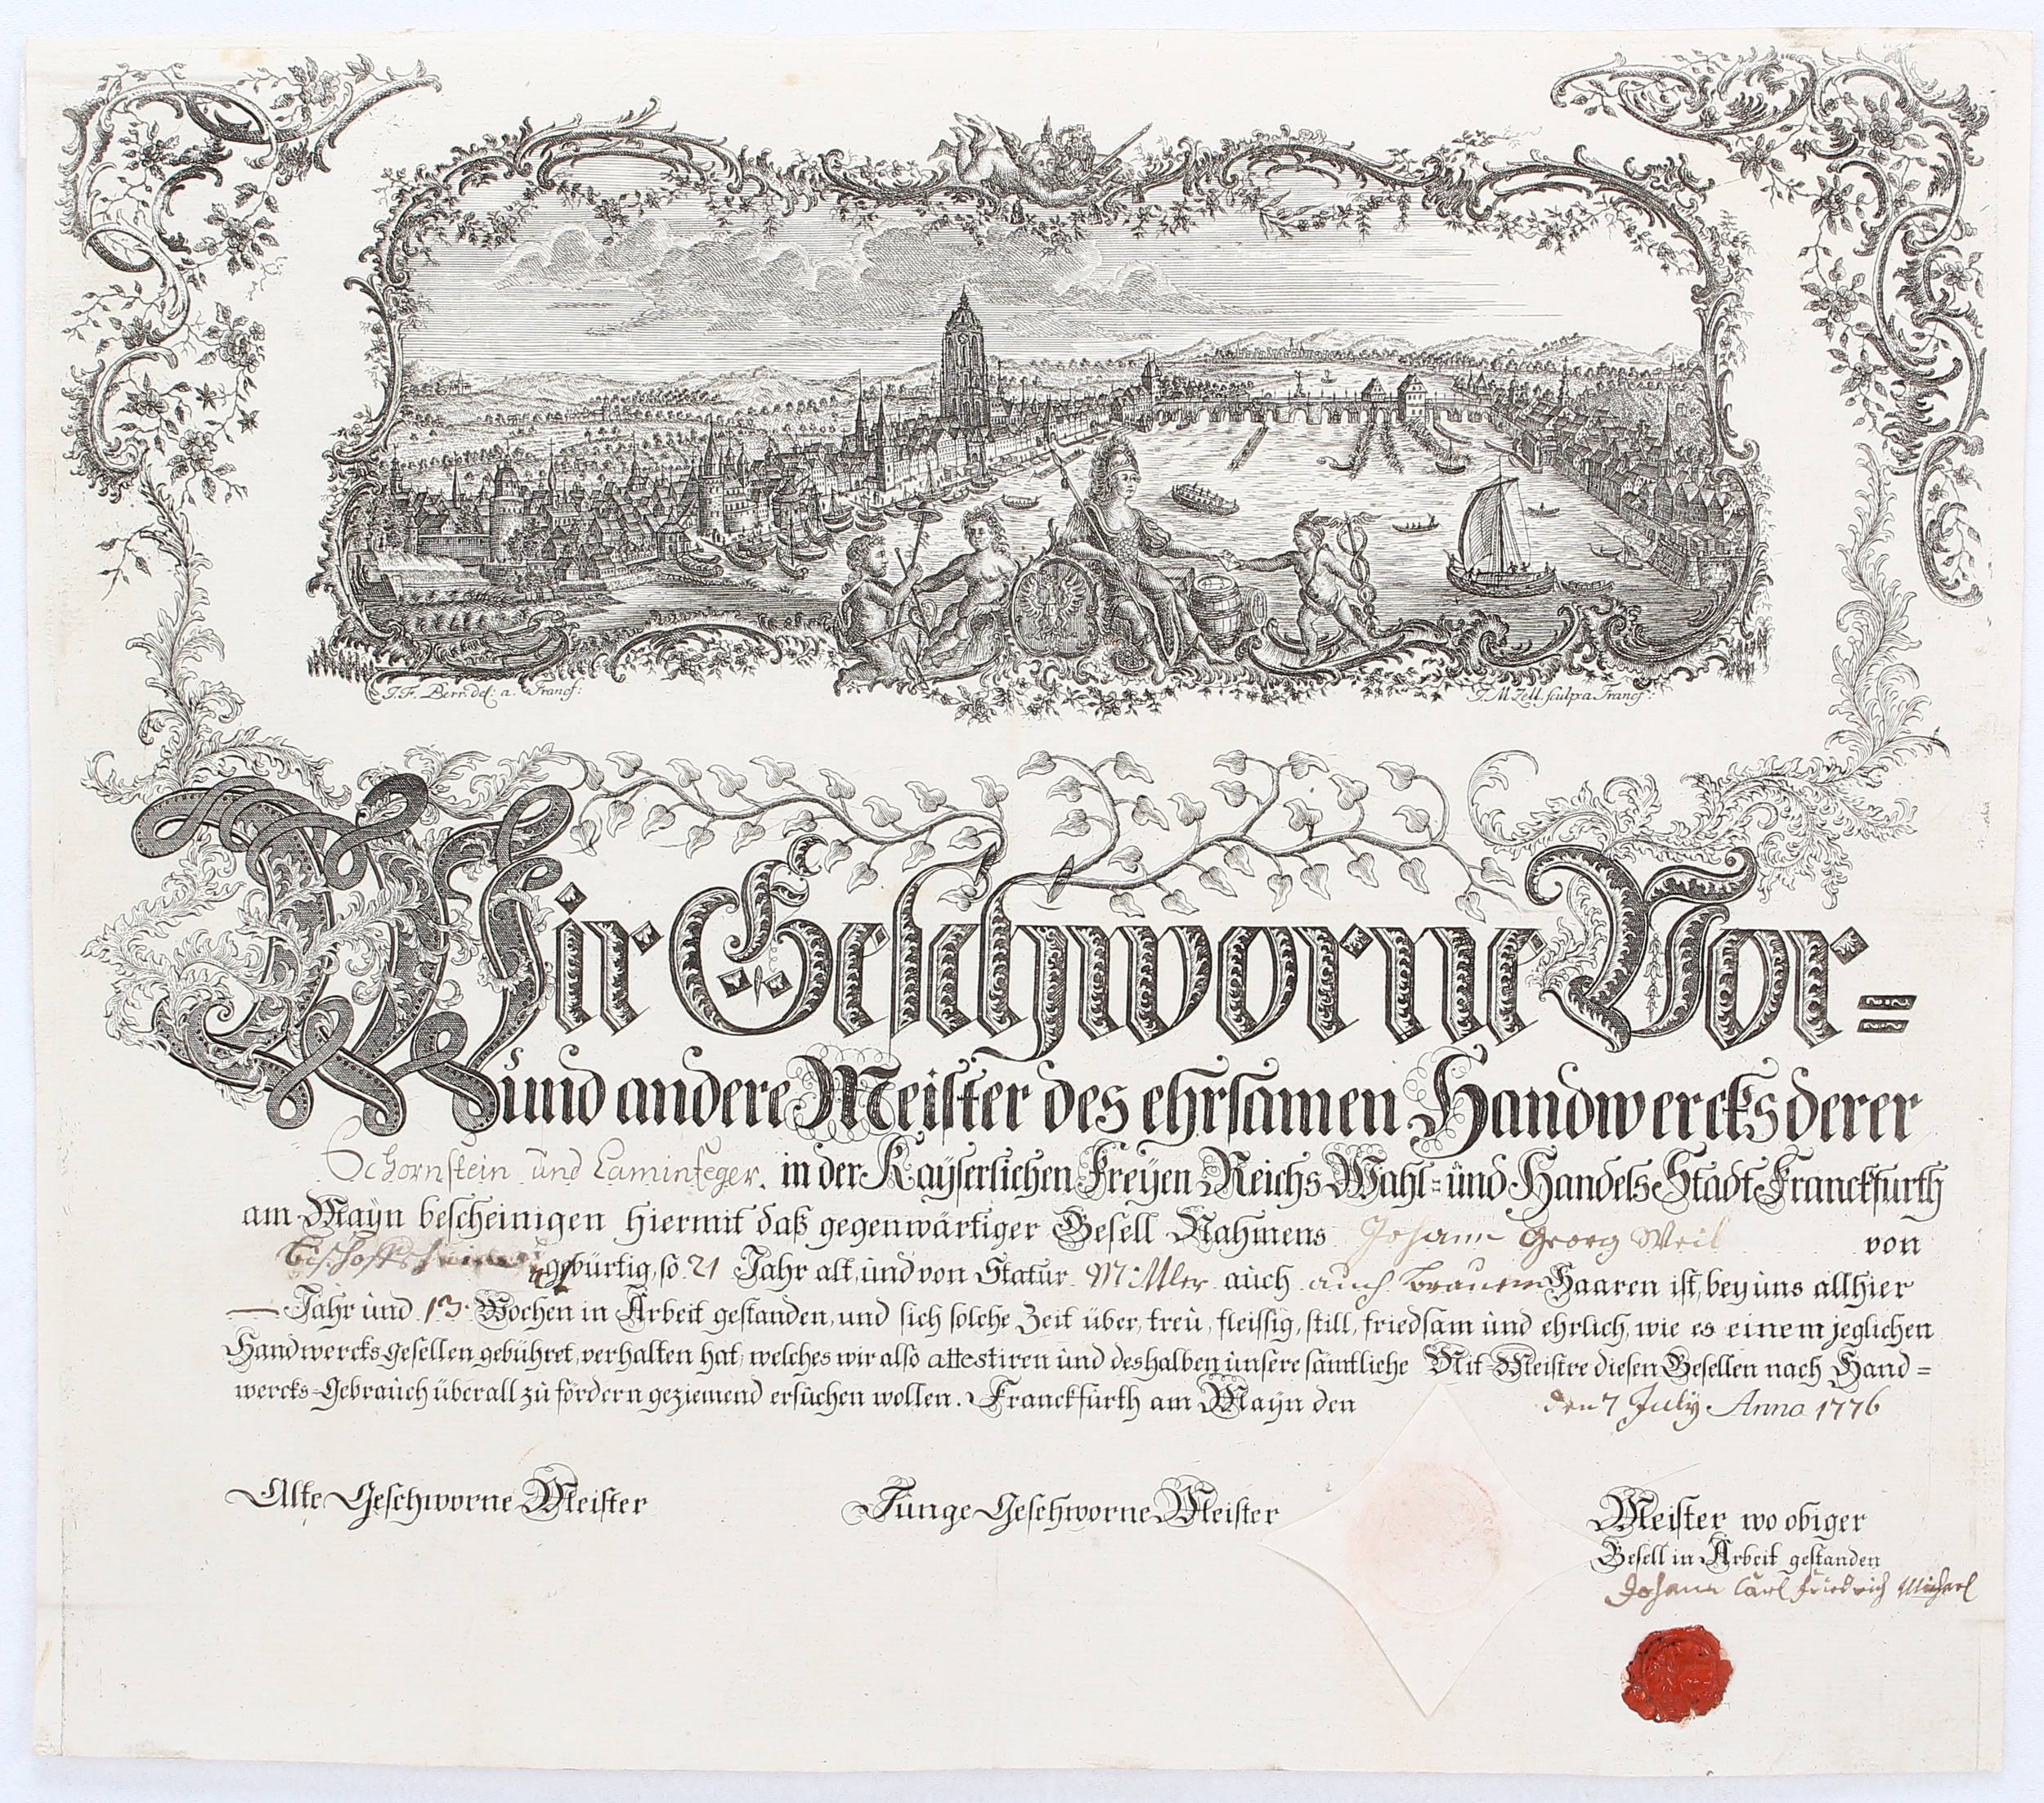 J. F. Bern. del: a. Francf:
J. M. Zell. sculp. a. Francf:
Wir Geschworne Vor=
und andere Meister des ehrsamen Handwercks derer
Schornstein und Caminfeger. in der Kayserlichen Freyen Reichs Wahl= und Handels Stadt Franckfurth
am Mayn bescheinigen hiermit daß gegenwärtiger Gesell Nahmens Johann Georg Weil von
gebürtig, so 21 Jahr alt, und von Statur Mittler auch auch braunen Haaren ist, bey uns allhier
— Jahr und 13. Wochen in Arbeit gestanden, und sich solche Zeit über, treu, fleissig, still, friedsam und ehrlich, wie es einem jeglichen
Handwercks-Gesellen gebühret, verhalten hat, welches wir also attestiren und deshalben unsere sämtliche Mit-Meistre diesen Gesellen nach Hand=
wercks-Gebrauch überall zu fördern geziemend ersuchen wollen. Franckfurth am Mayn den den 7 July Anno 1776
Alte Geschworne Meister
Junge Geschworne Meister
Meister wo obiger
Gesell in Arbeit gestanden
Johann Carl Friedrich Michael